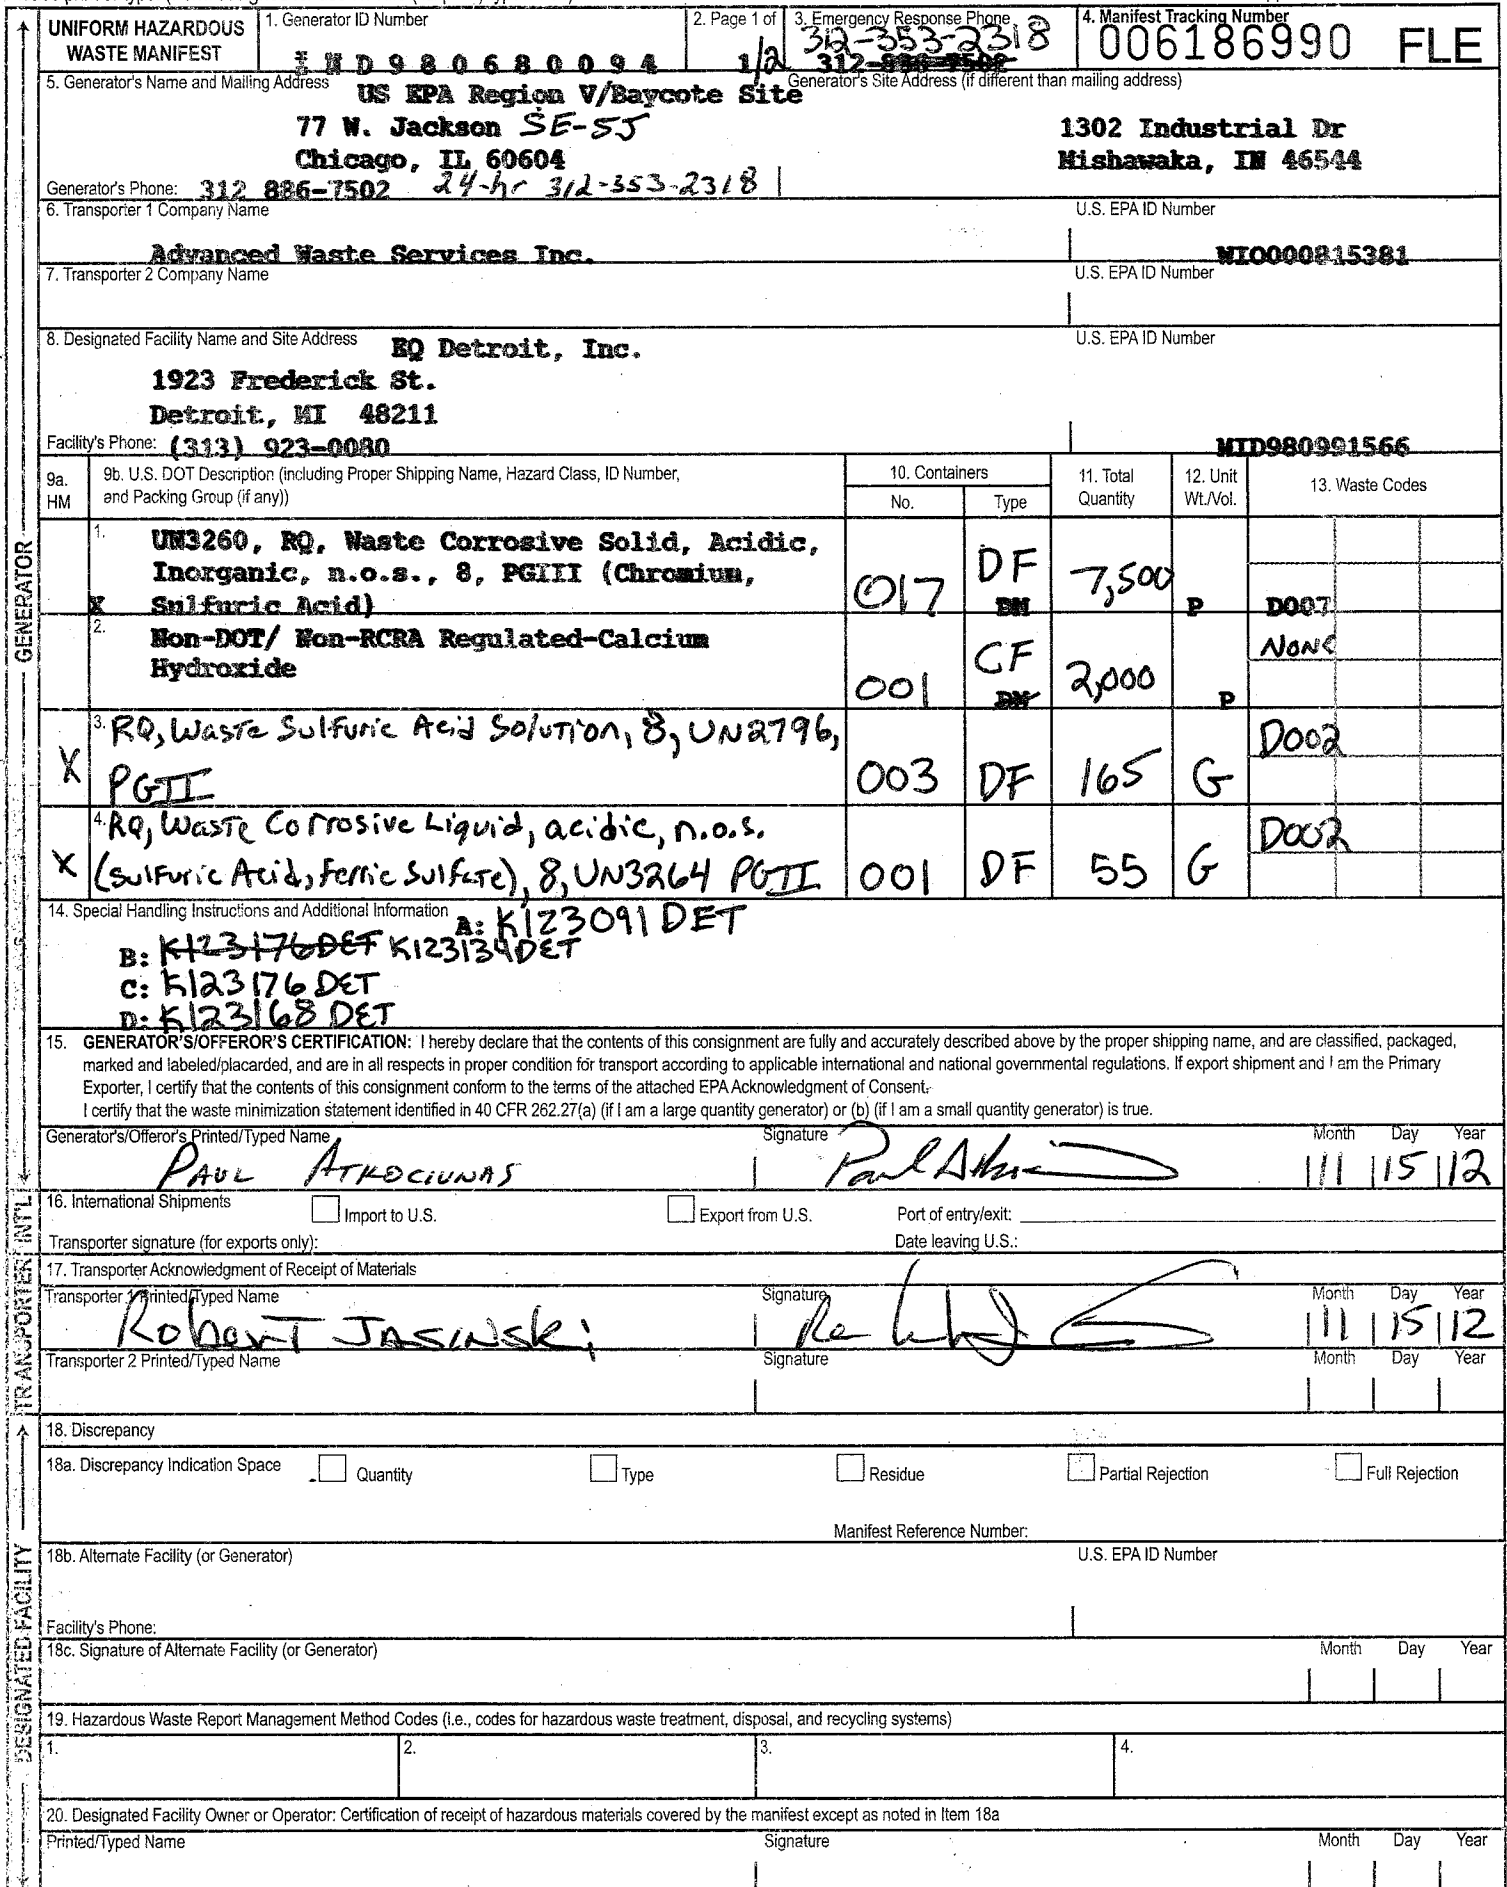 UNIFORM HAZARDOUS WASTE MANIFEST
1. Generator ID Number
IND980680094
2. Page 1 of
1/2
3. Emergency Response Phone
312-353-2318
4. Manifest Tracking Number
006186990 FLE
5. Generator's Name and Mailing Address
US EPA Region V/Baycote Site
77 W. Jackson SE-5J
Chicago, IL 60604
Generator's Phone: 312 886-7502 24-hr 312-353-2318
Generator's Site Address (if different than mailing address)
1302 Industrial Dr
Mishawaka, IN 46544
6. Transporter 1 Company Name
Advanced Waste Services Inc.
U.S. EPA ID Number
WIO000815381
7. Transporter 2 Company Name
U.S. EPA ID Number
8. Designated Facility Name and Site Address
EQ Detroit, Inc.
1923 Frederick St.
Detroit, MI 48211
Facility's Phone: (313) 923-0080
U.S. EPA ID Number
MID980991566
9a. HM
9b. U.S. DOT Description (including Proper Shipping Name, Hazard Class, ID Number,
and Packing Group (if any))
10. Containers
No.
Type
11. Total Quantity
12. Unit Wt./Vol.
13. Waste Codes
1. UN3260, RQ, Waste Corrosive Solid, Acidic,
Inorganic, n.o.s., 8, PGIII (Chromium,
X Sulfuric Acid)
017 DF DM 7,500 P D007
2. Non-DOT/ Non-RCRA Regulated-Calcium
Hydroxide
001 CF DM 2,000 P NONE
3. RQ, Waste Sulfuric Acid Solution, 8, UN2796,
X PGII
003 DF 165 G D002
4. RQ, Waste Corrosive Liquid, acidic, n.o.s.
X (Sulfuric Acid, Ferric Sulfate), 8, UN3264 PGII
001 DF 55 G D002
14. Special Handling Instructions and Additional Information
A: K123091DET
B: K123176DET K123134DET
C: K123176 DET
D: K123168 DET
15. GENERATOR'S/OFFEROR'S CERTIFICATION: I hereby declare that the contents of this consignment are fully and accurately described above by the proper shipping name, and are classified, packaged,
marked and labeled/placarded, and are in all respects in proper condition for transport according to applicable international and national governmental regulations. If export shipment and I am the Primary
Exporter, I certify that the contents of this consignment conform to the terms of the attached EPA Acknowledgment of Consent.
I certify that the waste minimization statement identified in 40 CFR 262.27(a) (if I am a large quantity generator) or (b) (if I am a small quantity generator) is true.
Generator's/Offeror's Printed/Typed Name
Signature
Month Day Year
PAUL ATKOCIUNAS
11 15 12
16. International Shipments
Import to U.S.
Export from U.S.
Port of entry/exit:
Transporter signature (for exports only):
Date leaving U.S.:
17. Transporter Acknowledgment of Receipt of Materials
Transporter 1 Printed/Typed Name
Signature
Month Day Year
Robert Jasinski
11 15 12
Transporter 2 Printed/Typed Name
Signature
Month Day Year
18. Discrepancy
18a. Discrepancy Indication Space
Quantity
Type
Residue
Partial Rejection
Full Rejection
Manifest Reference Number:
18b. Alternate Facility (or Generator)
U.S. EPA ID Number
Facility's Phone:
18c. Signature of Alternate Facility (or Generator)
Month Day Year
19. Hazardous Waste Report Management Method Codes (i.e., codes for hazardous waste treatment, disposal, and recycling systems)
1.
2.
3.
4.
20. Designated Facility Owner or Operator: Certification of receipt of hazardous materials covered by the manifest except as noted in Item 18a
Printed/Typed Name
Signature
Month Day Year
GENERATOR
INT'L
TRANSPORTER
DESIGNATED FACILITY